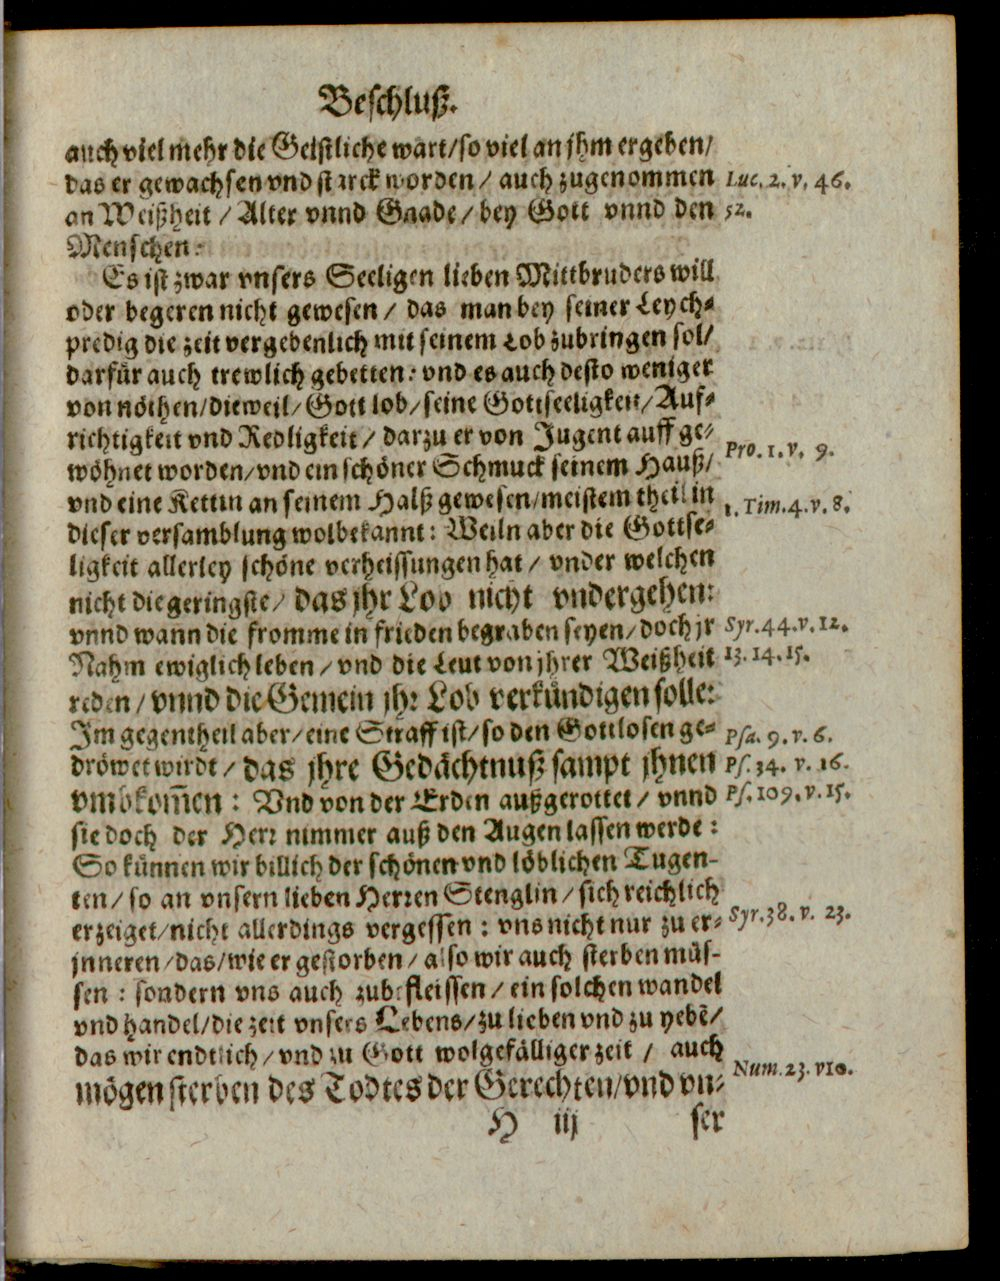 Beschluß.
auch viel mehr die Geistliche wart/ so viel an jhm ergeben/
das er gewachsen vnd starck worden / auch zugenommen Luc. 2. v. 46.
an Weißheit / Alter vnnd Gnade / bey Gott vnnd den 52.
Menschen.
Es ist zwar vnsers Seeligen lieben Mittbruders will
oder begeren nicht gewesen / das man bey seiner Leych-
predig die zeit vergebenlich mit seinem Lob zubringen sol/
darfür auch trewlich gebetten: vnd es auch desto weniger
von nöthen/ dieweil/ Gott lob/ seine Gottseeligkeit/ Auf-
richtigkeit vnd Redligkeit / darzu er von Jugent auff ge-
wöhnet worden/ vnd ein schöner Schmuck seinem Hauß/ Pro. 1. v. 9.
vnd eine Kettin an seinem Halß gewesen/ meistem theil in 1. Tim. 4. v. 8.
dieser versamblung wolbekannt: Weiln aber die Gottse-
ligkeit allerley schöne verheissungen hat / vnder welchen
nicht die geringste / das jhr Lob nicht vndergehen:
vnnd wann die fromme in frieden begraben seyen/ doch jr Syr. 44. v. 12.
Nahm ewiglich leben / vnd die Leut von jhrer Weißheit 13. 14. 15.
reden / vnnd die Gemein jhr Lob verkündigen solle:
Im gegentheil aber/ eine Straff ist/ so den Gottlosen ge- Psa. 9. v. 6.
dröwet wirdt / das jhre Gedächtnuß sampt jhnen Ps. 34. v. 16.
vmbkom̃en : Vnd von der Erden außgerottet / vnnd Ps. 109. v. 15.
sie doch der Herr nimmer auß den Augen lassen werde :
So künnen wir billich der schönen vnd löblichen Tugen-
ten / so an vnsern lieben Herren Stenglin / sich reichlich
erzeiget/ nicht allerdings vergessen : vns nicht nur zu er- Syr. 38. v. 23.
jnneren / das/ wie er gestorben / also wir auch sterben müs-
sen : sondern vns auch zubefleissen / ein solchen wandel
vnd handel/ die zeit vnsers Lebens/ zu lieben vnd zu yebẽ/
das wir endtlich / vnd zu Gott wolgefälliger zeit / auch
mögen sterben des Todtes der Gerechten/ vnd vn- Num. 23. v10.
H iij ser